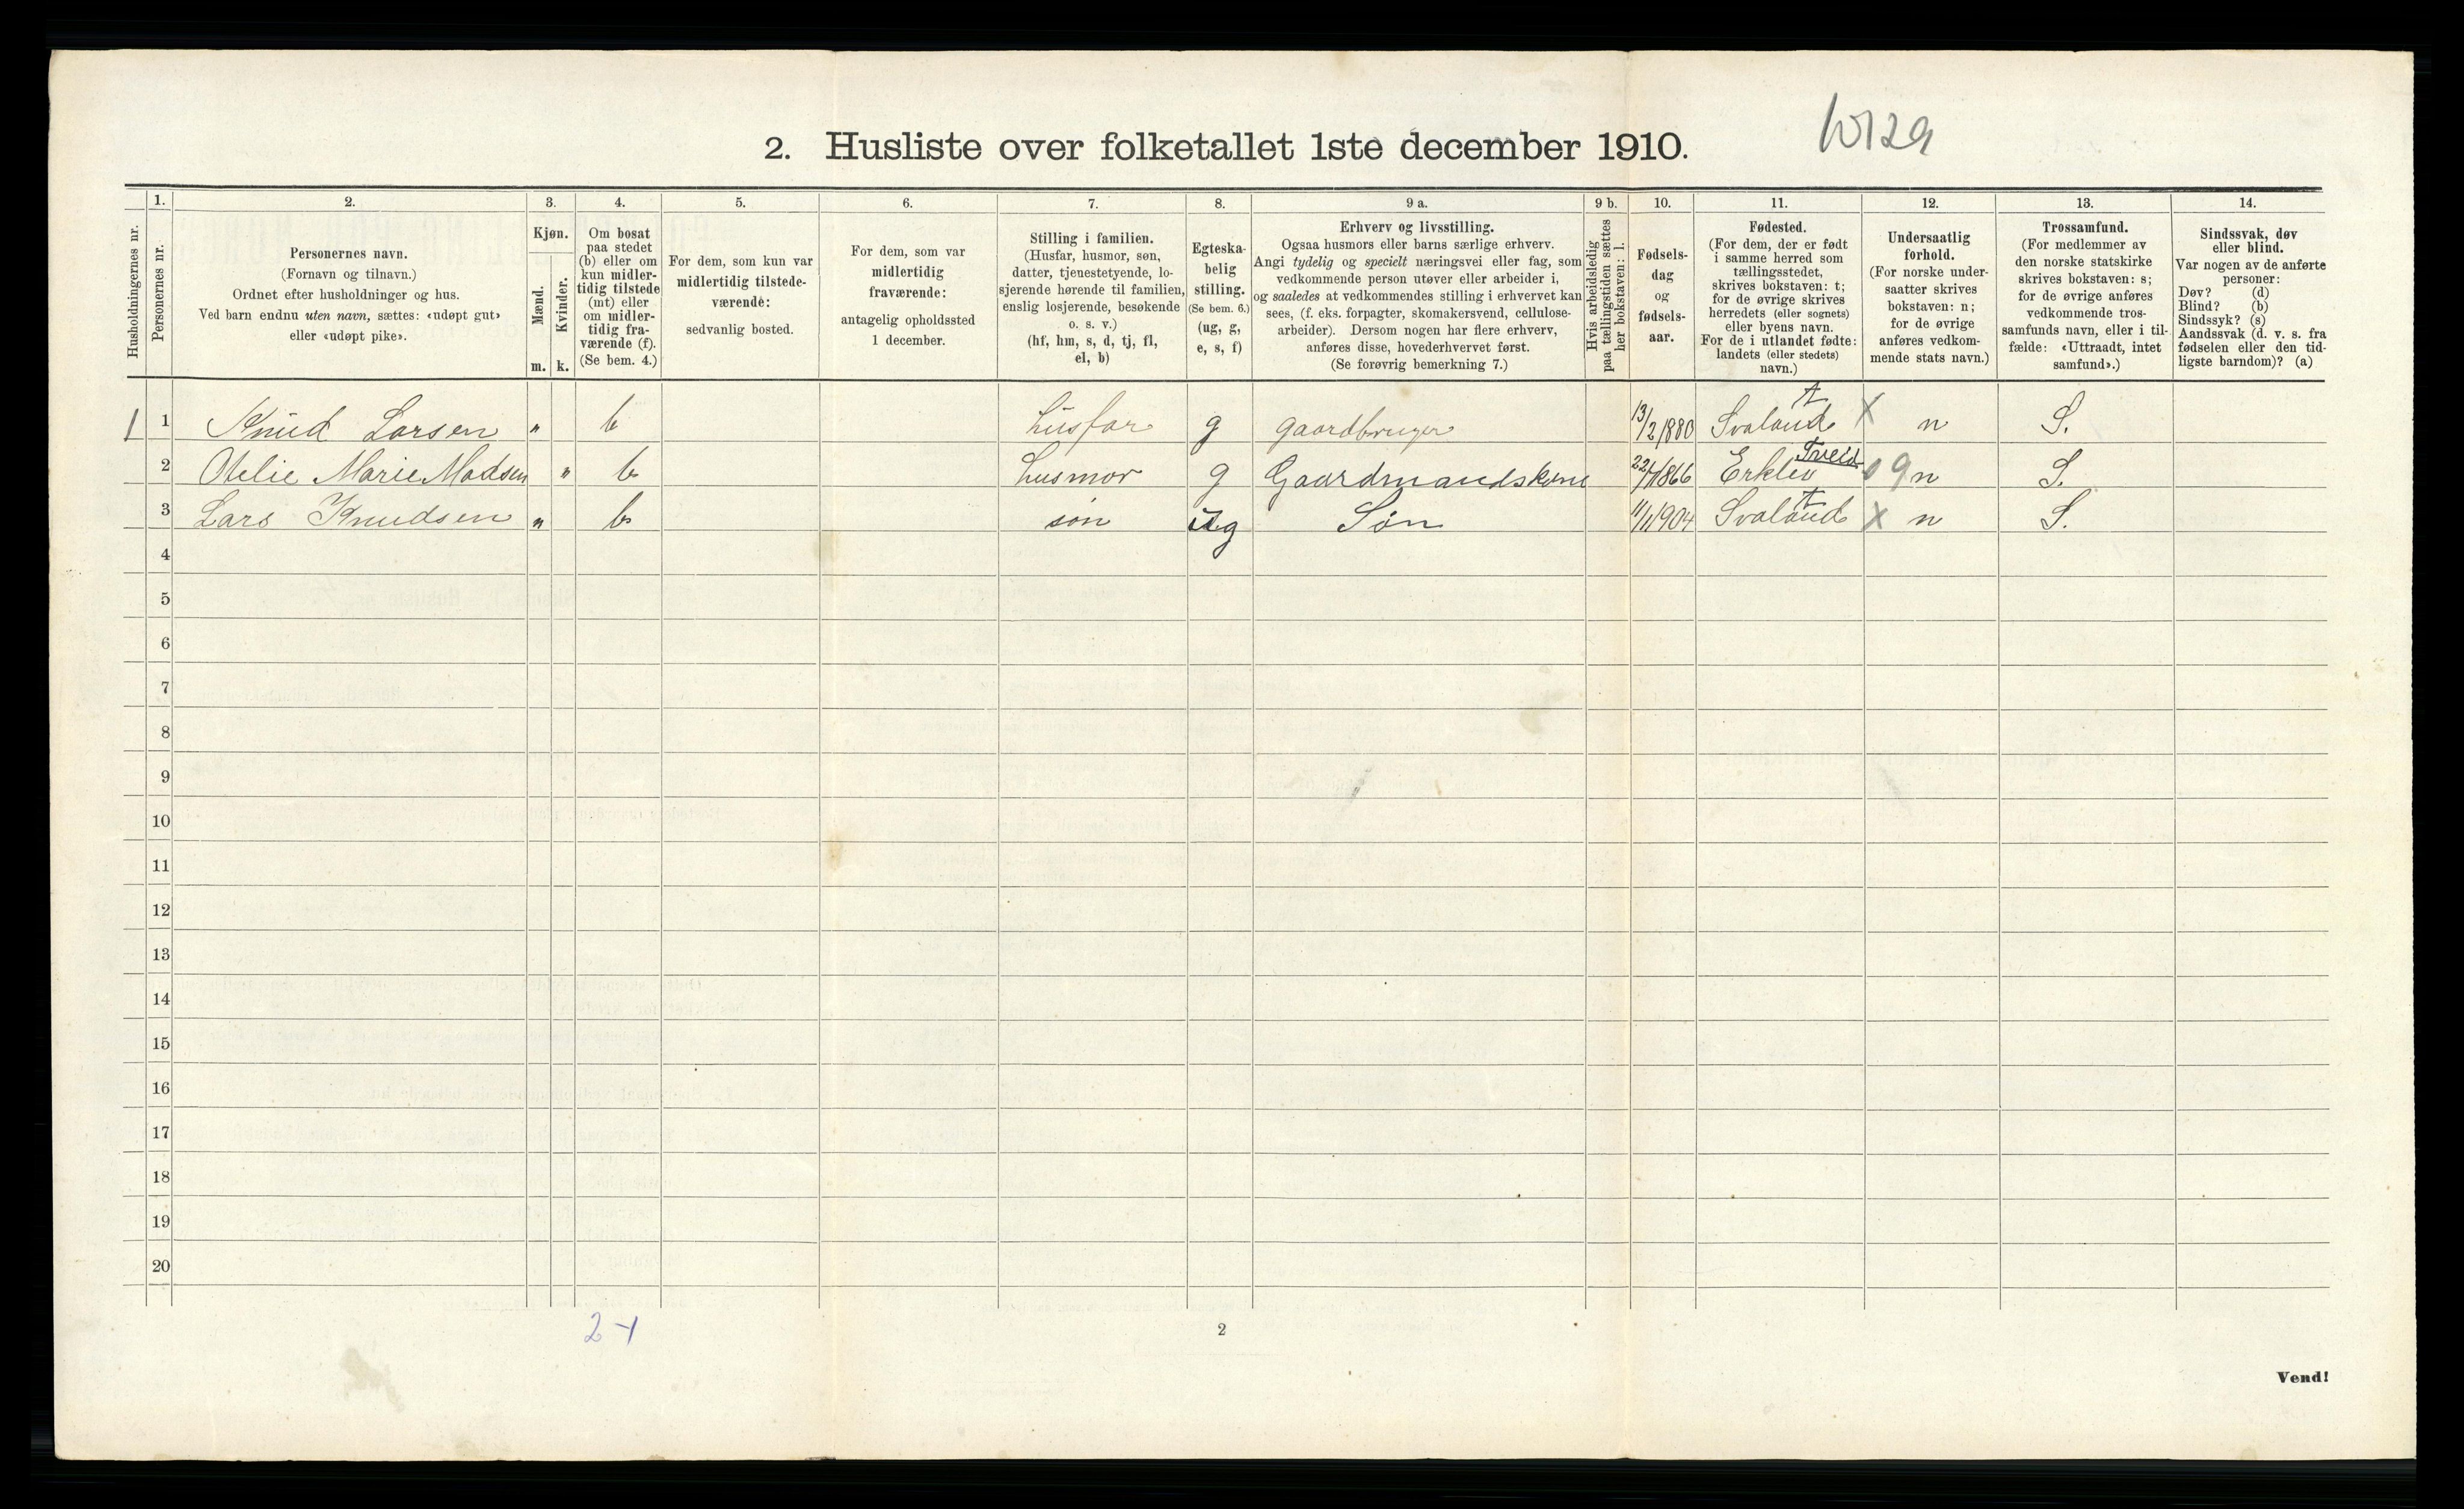 2. Husliste over folketallet 1ste december 1910.
Husholdningernes nr.
1.
Personernes nr.
2.
Personernes navn.
(Fornavn og tilnavn.)
Ordnet efter husholdninger og hus.
Ved barn endnu uten navn, sættes: «udøpt gut»
eller «udøpt pike».
3.
Kjøn.
Mænd.
m.
Kvinder.
k.
4.
Om bosat
paa stedet
(b) eller om
kun midler-
tidig tilstede
(mt) eller
om midler-
tidig fra-
værende (f).
(Se bem. 4.)
5.
For dem, som kun var
midlertidig tilstede-
værende:
sedvanlig bosted.
6.
For dem, som var
midlertidig
fraværende:
antagelig opholdssted
1 december.
7.
Stilling i familien.
(Husfar, husmor, søn,
datter, tjenestetyende, lo-
sjerende hørende til familien,
enslig losjerende, besøkende
o. s. v.)
(hf, hm, s, d, tj, fl,
el, b)
8.
Egteska-
belig
stilling.
(Se bem. 6.)
(ug, g,
e, s, f)
9 a.
Erhverv og livsstilling.
Ogsaa husmors eller barns særlige erhverv.
Angi tydelig og specielt næringsvei eller fag, som
vedkommende person utøver eller arbeider i,
og saaledes at vedkommendes stilling i erhvervet kan
sees, (f. eks. forpagter, skomakersvend, cellulose-
arbeider). Dersom nogen har flere erhverv,
anføres disse, hovederhvervet først.
(Se forøvrig bemerkning 7.)
9 b.
Hvis arbeidsledig
paa tællingstiden sættes
her bokstaven: l.
10.
Fødsels-
dag
og
fødsels-
aar.
11.
Fødested.
(For dem, der er født
i samme herred som
tællingsstedet,
skrives bokstaven: t;
for de øvrige skrives
herredets (eller sognets)
eller byens navn.
For de i utlandet fødte:
landets (eller stedets)
navn.)
12.
Undersaatlig
forhold.
(For norske under-
saatter skrives
bokstaven: n;
for de øvrige
anføres vedkom-
mende stats navn.)
13.
Trossamfund.
(For medlemmer av
den norske statskirke
skrives bokstaven: s;
for de øvrige anføres
vedkommende tros-
samfunds navn, eller i til-
fælde: «Uttraadt, intet
samfund».)
14.
Sindssvak, døv
eller blind.
Var nogen av de anførte
personer:
Døv? (d)
Blind? (b)
Sindssyk? (s)
Aandssvak (d. v. s. fra
fødselen eller den tid-
ligste barndom)? (a)
1 1 Knud Larsen " b husfar g gaardbruger 13/2 1880 Svaland t X n S.
2 Otelie Marie Madsen " b husmor g Gaardmandskone 22/7 1866 Erklev Tveid 0 9 n S.
3 Lars Knudsen " b søn ug Søn 11/11904 Svaland t X n S.
4
5
6
7
8
9
10
11
12
13
14
15
16
17
18
19
20
2-1
2
Vend!